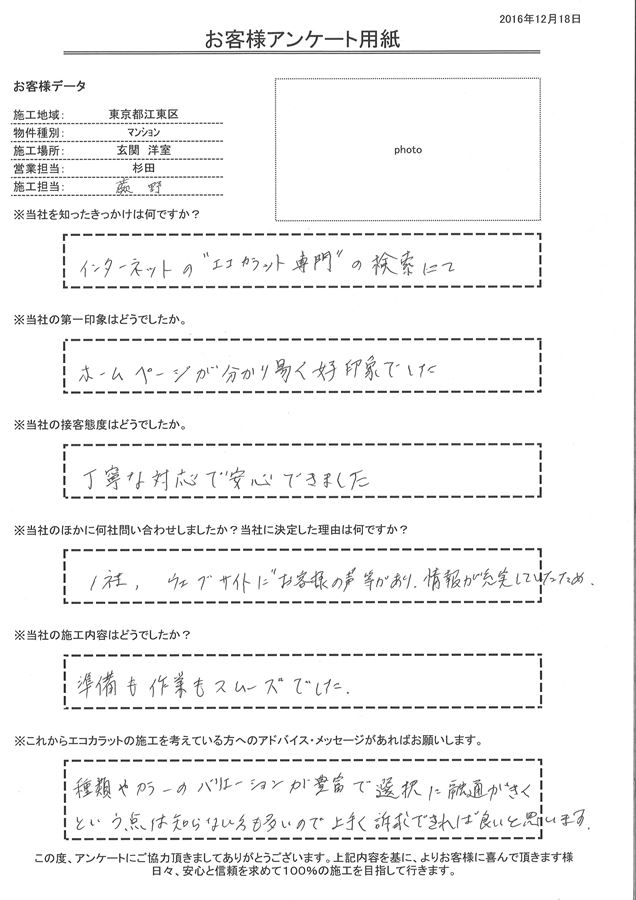 2016年12月18日
お客様アンケート用紙
お客様データ
施工地域: 東京都江東区
物件種別: マンション
施工場所: 玄関 洋室
営業担当: 杉田
施工担当: 藤野
photo
※当社を知ったきっかけは何ですか?
インターネットの"エコカラット専門"の検索にて
※当社の第一印象はどうでしたか。
ホームページが分かり易く好印象でした
※当社の接客態度はどうでしたか。
丁寧な対応で安心できました
※当社のほかに何社問い合わせしましたか?当社に決定した理由は何ですか?
1社, ウェブサイトに"お客様の声"等があり、情報が充実していたため.
※当社の施工内容はどうでしたか?
準備も作業もスムーズでした.
※これからエコカラットの施工を考えている方へのアドバイス・メッセージがあればお願いします。
種類やカラーのバリエーションが豊富で選択に融通がきく
という点は知らない方も多いので上手く訴求できれば良いと思います.
この度、アンケートにご協力頂きましてありがとうございます。上記内容を基に、よりお客様に喜んで頂きます様
日々、安心と信頼を求めて100%の施工を目指して行きます。